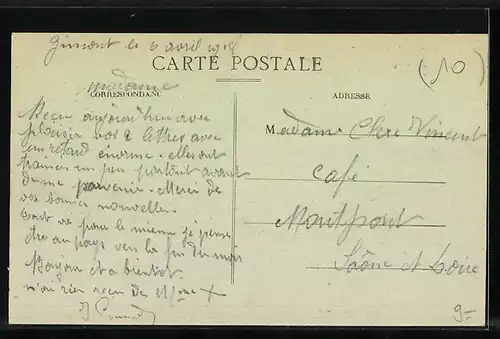 Gimont le 6 avril 1918
CARTE POSTALE
(10)
Madame
CORRESPONDANC
ADRESSE
Reçu aujourd'hui avec
plaisir vos 2 lettres avec
un retard énorme - elles ont
trainées un peu partout avant
de me parvenir. Merci de
vos bonnes nouvelles.
Tout va pour le mieux je pense
être au pays vers la fin du mois
Bonjour et a bientot.
n'ai rien reçu de Mme X
Madame Clere Vincent
Café
Montpont
Saône et Loire
9-